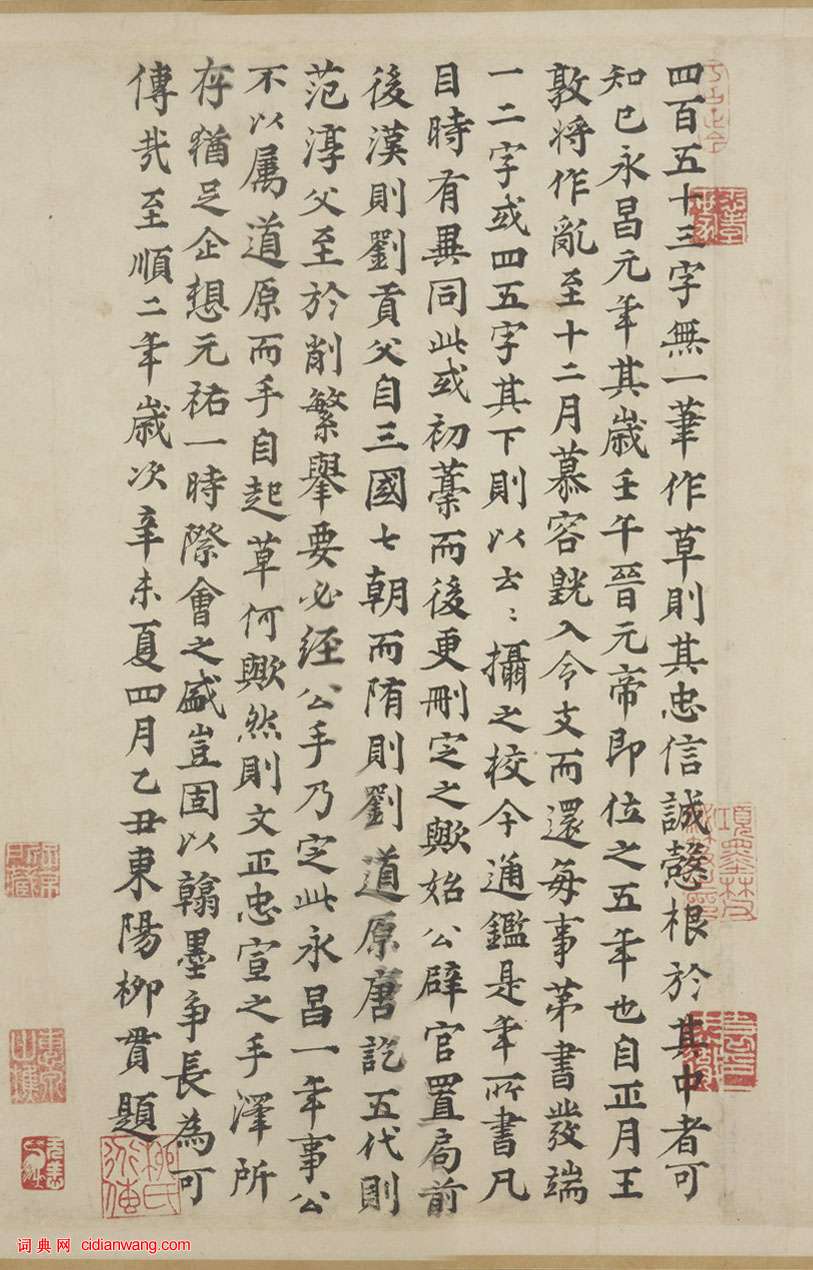 四百五十三字無一筆作草則其忠信誠慤根於其中者可
知已永昌元年其歲壬午晉元帝即位之五年也自正月王
敦將作亂至十二月慕容皝入令支而還每事第書發端
一二字或四五字其下則以云〻攝之校今通鑑是年所書凡
目時有異同此或初藁而後更刪定之歟始公辟官置局前
後漢則劉貢父自三國七朝而隋則劉道原唐訖五代則
范淳父至於削繁舉要必經公手乃定此永昌一年事公
不以屬道原而手自起草何歟然則文正忠宣之手澤所
存猶足企想元祐一時際會之盛豈固以翰墨爭長為可
傳哉至順二年歲次辛未夏四月乙丑東陽柳貫題
柳氏
词典网 cidianwang.com